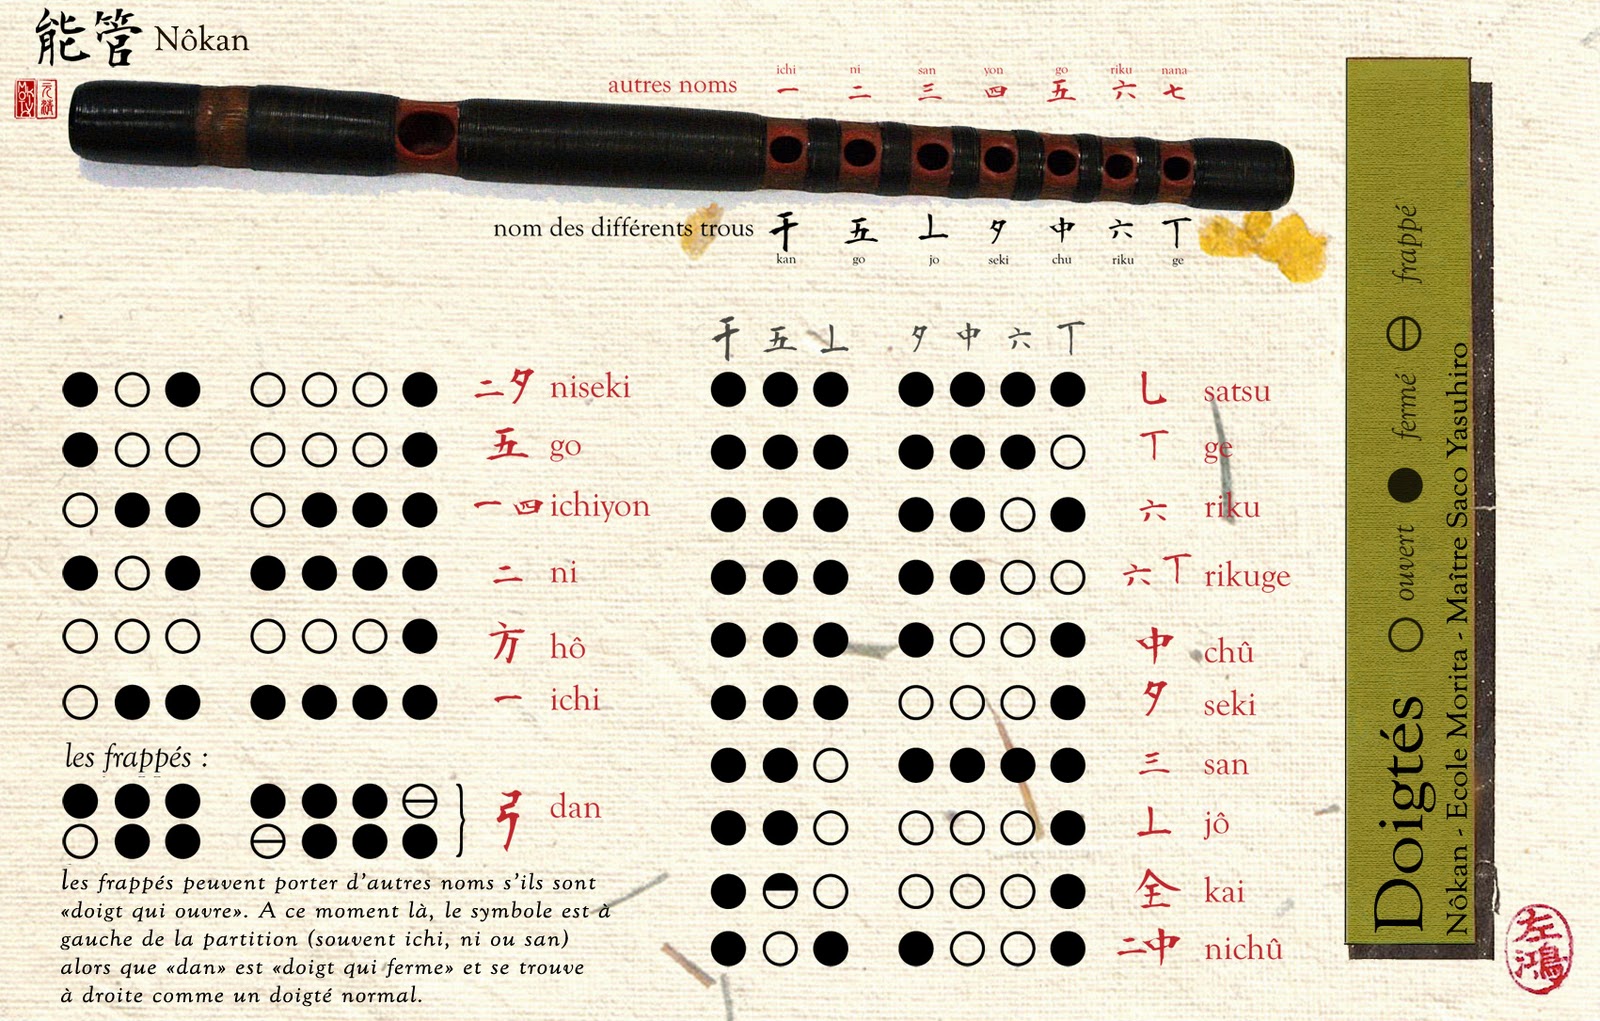 能管 Nôkan
autres noms
ichi ni san yon go riku nana
一 二 三 四 五 六 七
nom des différents trous
干 五 丄 夕 中 六 丅
kan go jo seki chu riku ge
干 五 丄 夕 中 六 丅
二夕 niseki
五 go
一四 ichiyon
二 ni
方 hô
一 ichi
les frappés :
弓 dan
les frappés peuvent porter d’autres noms s’ils sont
«doigt qui ouvre». A ce moment là, le symbole est à
gauche de la partition (souvent ichi, ni ou san)
alors que «dan» est «doigt qui ferme» et se trouve
à droite comme un doigté normal.
乚 satsu
丅 ge
六 riku
六丅 rikuge
中 chû
夕 seki
三 san
丄 jô
全 kai
二中 nichû
Doigtés ouvert fermé frappé
Nôkan - Ecole Morita - Maître Saco Yasuhiro
左
鴻